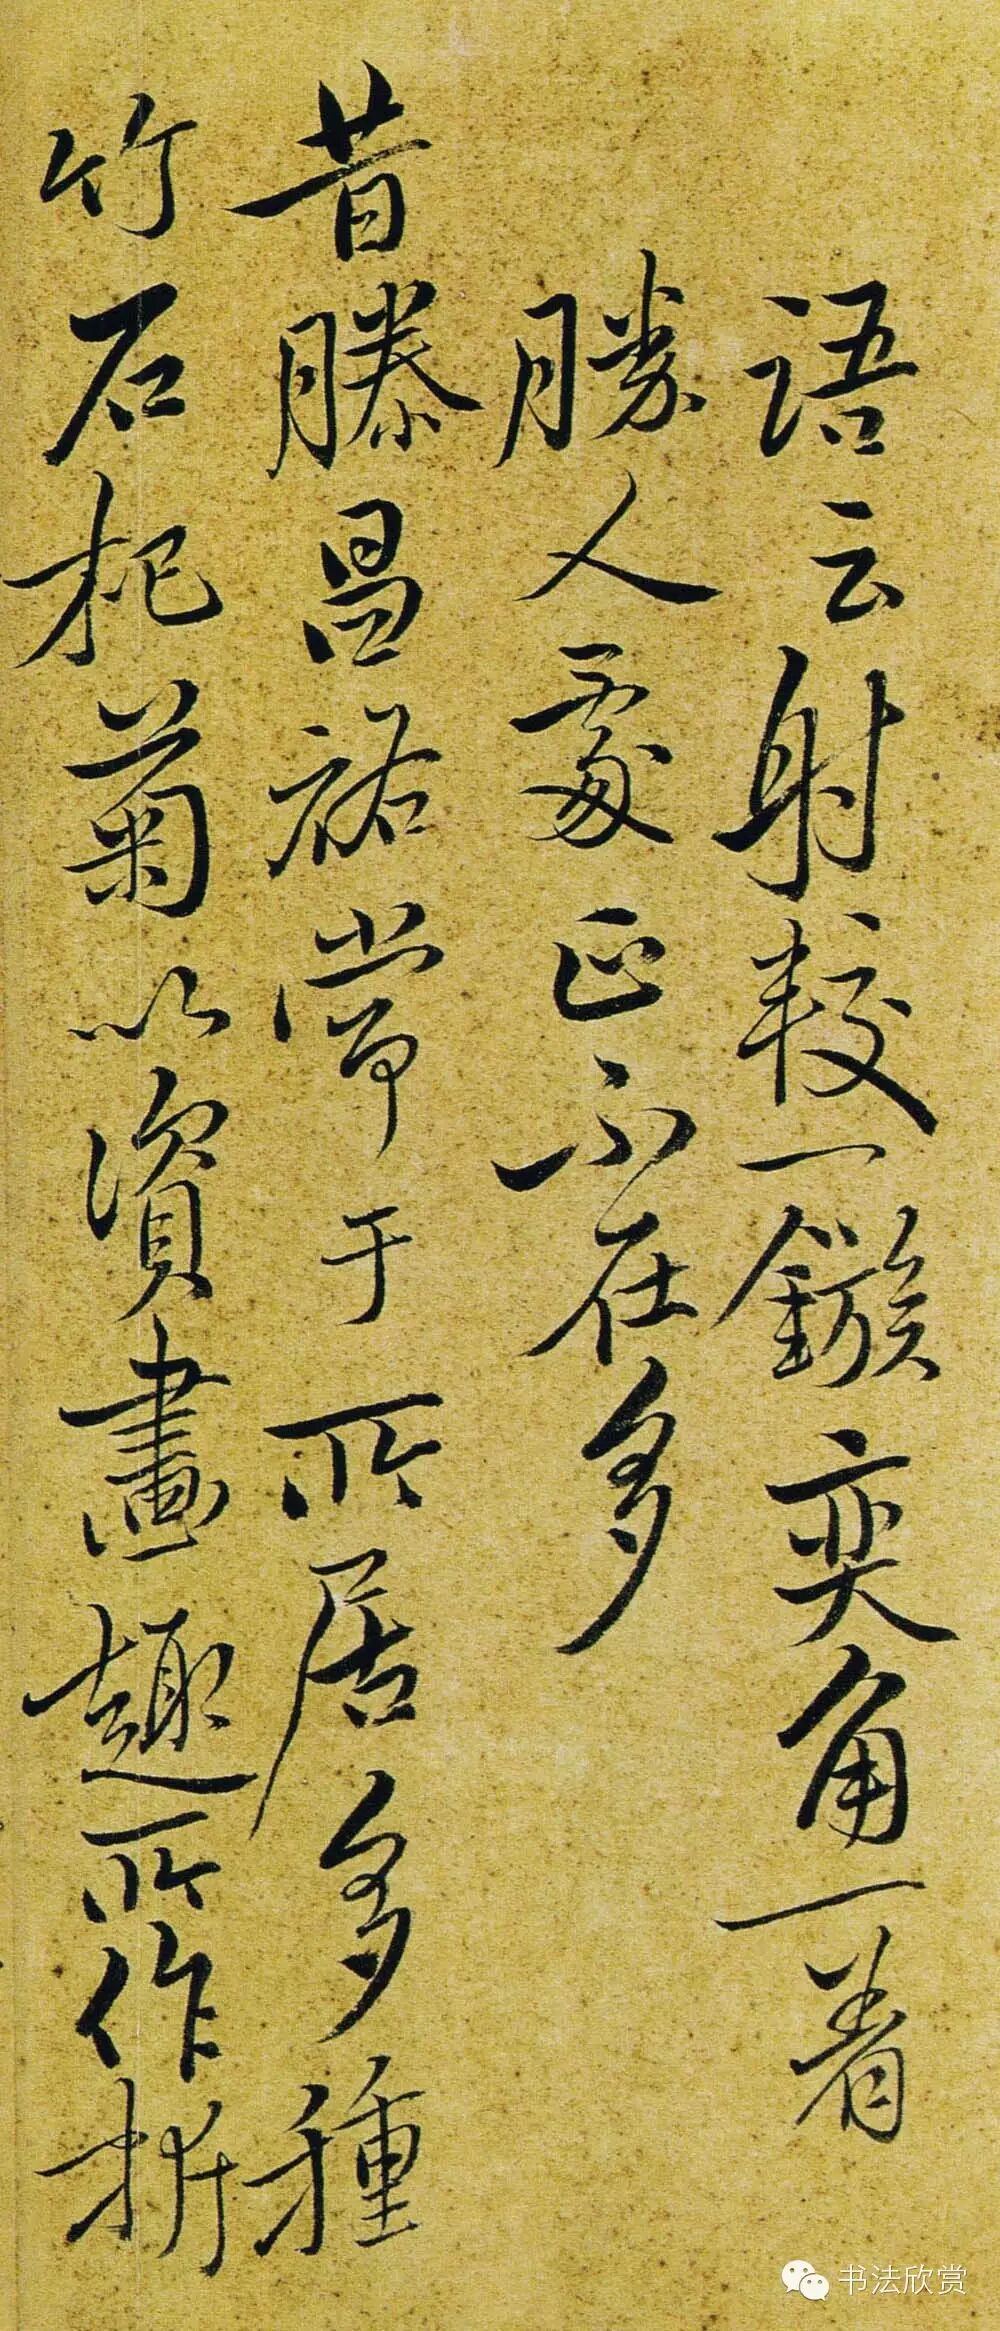 語云射較一鏃奕角一着
勝人處正不在多
昔滕昌祐常于所居多種
竹石杞菊以資畫趣所作折
书法欣赏